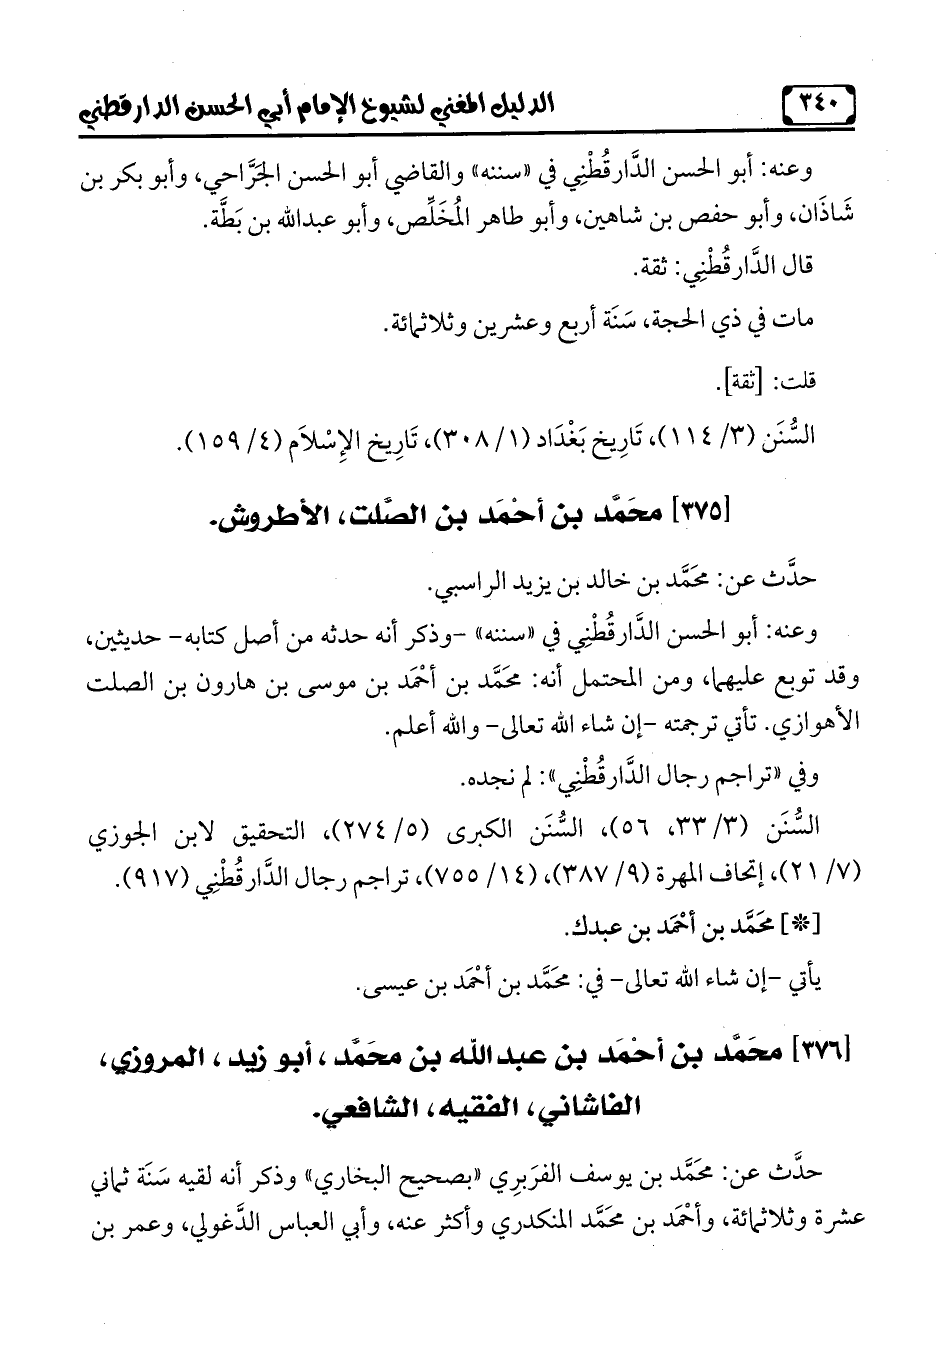 ٣٤٠ الدليل المغني لشيوخ الإمام أبي الحسن الدارقطني
وعنه: أبو الحسن الدَّارقُطْنِي في «سننه» والقاضي أبو الحسن الجَرَّاحي، وأبو بكر بن
شَاذَان، وأبو حفص بن شاهين، وأبو طاهر المُخَلِّص، وأبو عبدالله بن بَطَّة.
قال الدَّارقُطْنِي: ثقة.
مات في ذي الحجة، سَنَة أربع وعشرين وثلاثمائة.
قلت: [ثقة].
السُّنَن (٣/ ١١٤)، تَارِيخ بَغْدَاد (١/ ٣٠٨)، تَارِيخ الإِسْلاَم (٤/ ١٥٩).
[٣٧٥] محَمَّد بن أحْمَد بن الصَّلت، الأطروش.
حدَّث عن: محَمَّد بن خالد بن يزيد الراسبي.
وعنه: أبو الحسن الدَّارقُطْنِي في «سننه» -وذكر أنه حدثه من أصل كتابه- حديثين،
وقد توبع عليهما، ومن المحتمل أنه: محَمَّد بن أحْمَد بن موسى بن هارون بن الصلت
الأهوازي. تأتي ترجمته -إن شاء الله تعالى- والله أعلم.
وفي «تراجم رجال الدَّارقُطْنِي»: لم نجده.
السُّنَن (٣/ ٣٣، ٥٦)، السُّنَن الكبرى (٥/ ٢٧٤)، التحقيق لابن الجوزي
(٧/ ٢١)، إتحاف المهرة (٩/ ٣٨٧)، (١٤/ ٧٥٥)، تراجم رجال الدَّارقُطْنِي (٩١٧).
[*] محَمَّد بن أحْمَد بن عبدك.
يأتي -إن شاء الله تعالى- في: محَمَّد بن أحْمَد بن عيسى.
[٣٧٦] محَمَّد بن أحْمَد بن عبدالله بن محَمَّد، أبو زيد، المروزي،
الفاشاني، الفقيه، الشافعي.
حدَّث عن: محَمَّد بن يوسف الفَربِري «بصحيح البخاري» وذكر أنه لقيه سَنَة ثماني
عشرة وثلاثمائة، وأحْمَد بن محَمَّد المنكدري وأكثر عنه، وأبي العباس الدَّغولي، وعمر بن